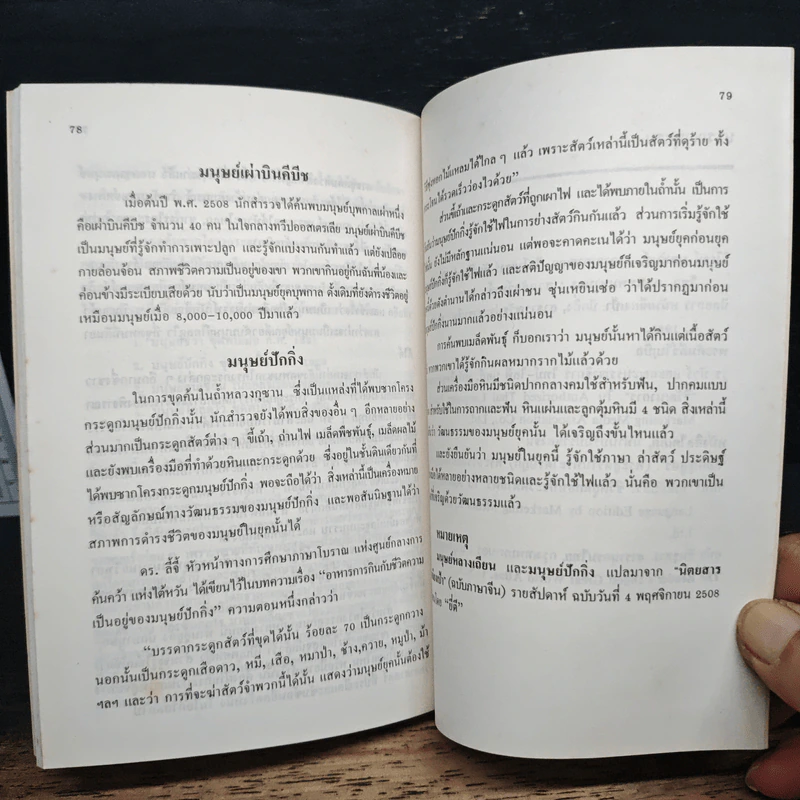 78
มนุษย์เผ่าบินดีบีช
เมื่อต้นปี พ.ศ. 2508 นักสำรวจได้ค้นพบมนุษย์บุพกาลเผ่าหนึ่ง
คือเผ่าบินดีบีช จำนวน 40 คน ในใจกลางทวีปออสเตรเลีย มนุษย์เผ่าบินดีบีช
เป็นมนุษย์ที่รู้จักทำการเพาะปลูก และรู้จักแบ่งงานกันทำแล้ว แต่ยังเปลือย
กายล่อนจ้อน สภาพชีวิตความเป็นอยู่ของเขา พวกเขากินอยู่กันฉันพี่น้องและ
ค่อนข้างมีระเบียบเสียด้วย นับว่าเป็นมนุษย์ยุคบุพกาล ดั้งเดิมที่ยังดำรงชีวิตอยู่
เหมือนมนุษย์เมื่อ 8,000–10,000 ปีมาแล้ว
มนุษย์ปักกิ่ง
ในการขุดค้นในถ้ำหลวงกุซาน ซึ่งเป็นแหล่งที่ได้พบซากโครง
กระดูกมนุษย์ปักกิ่งนั้น นักสำรวจยังได้พบสิ่งของอื่น ๆ อีกหลายอย่าง
ส่วนมากเป็นกระดูกสัตว์ต่าง ๆ ขี้เถ้า, ถ่านไฟ เมล็ดพืชพันธุ์, เมล็ดผลไม้
และยังพบเครื่องมือที่ทำด้วยหินและกระดูกด้วย ซึ่งอยู่ในชั้นดินเดียวกันที่
ได้พบซากโครงกระดูกมนุษย์ปักกิ่ง พอจะถือได้ว่า สิ่งเหล่านี้เป็นเครื่องหมาย
หรือสัญลักษณ์ทางวัฒนธรรมของมนุษย์ปักกิ่ง และพอสันนิษฐานได้ว่า
สภาพการดำรงชีวิตของมนุษย์ในยุคนั้นได้
ดร. ลี้จี้ หัวหน้าทางการศึกษาภาษาโบราณ แห่งศูนย์กลางการ
ค้นคว้า แห่งไต้หวัน ได้เขียนไว้ในบทความเรื่อง "อาหารการกินกับชีวิตความ
เป็นอยู่ของมนุษย์ปักกิ่ง" ความตอนหนึ่งกล่าวว่า
"บรรดากระดูกสัตว์ที่ขุดได้นั้น ร้อยละ 70 เป็นกระดูกกวาง
นอกนั้นเป็นกระดูกเสือดาว, หมี, เสือ, หมาป่า, ช้าง, ควาย, หมูป่า, ม้า
ฯลฯ และว่า การที่จะฆ่าสัตว์จำพวกนี้ได้นั้น แสดงว่ามนุษย์ยุคนั้นต้องใช้
79
ไม้แหลมได้ไกล ๆ แล้ว เพราะสัตว์เหล่านี้เป็นสัตว์ที่ดุร้าย ทั้ง
ได้รวดเร็วว่องไวด้วย"
ส่วนขี้เถ้าและกระดูกสัตว์ที่ถูกเผาไฟ และได้พบภายในถ้ำนั้น เป็นการ
มนุษย์ปักกิ่งรู้จักใช้ไฟในการย่างสัตว์กินกันแล้ว ส่วนการเริ่มรู้จักใช้
ยังไม่มีหลักฐานแน่นอน แต่พอจะคาดคะเนได้ว่า มนุษย์ยุคก่อนยุค
ปักกิ่งก็รู้จักใช้ไฟแล้ว และสติปัญญาของมนุษย์ก็เจริญมาก่อนมนุษย์
ดังตำนานได้กล่าวถึงเผ่าชน ซุ่นเหยินเซ่อ ว่าได้ปรากฏมาก่อน
ปักกิ่งนานมาแล้วอย่างแน่นอน
การค้นพบเมล็ดพันธุ์ ก็บอกเราว่า มนุษย์นั้นหาได้กินแต่เนื้อสัตว์
พวกเขาได้รู้จักกินผลหมากรากไม้แล้วด้วย
ส่วนเครื่องมือหินมีชนิดปากกลางคมใช้สำหรับฟัน, ปากคมแบบ
สำหรับใช้ในการถากและฟัน หินแผ่นและลูกตุ้มหินมี 4 ชนิด สิ่งเหล่านี้
ว่า วัฒนธรรมของมนุษย์ยุคนั้น ได้เจริญถึงขั้นไหนแล้ว
และยังยืนยันว่า มนุษย์ในยุคนี้ รู้จักใช้ภาษา ล่าสัตว์ ประดิษฐ์
ได้หลายอย่างหลายชนิดและรู้จักใช้ไฟแล้ว นั่นคือ พวกเขาเป็น
เจริญด้วยวัฒนธรรมแล้ว
หมายเหตุ
มนุษย์หลางเถียน และมนุษย์ปักกิ่ง แปลมาจาก "นิตยสาร
(ฉบับภาษาจีน) รายสัปดาห์ ฉบับวันที่ 4 พฤศจิกายน 2508
"ยี่ตี"